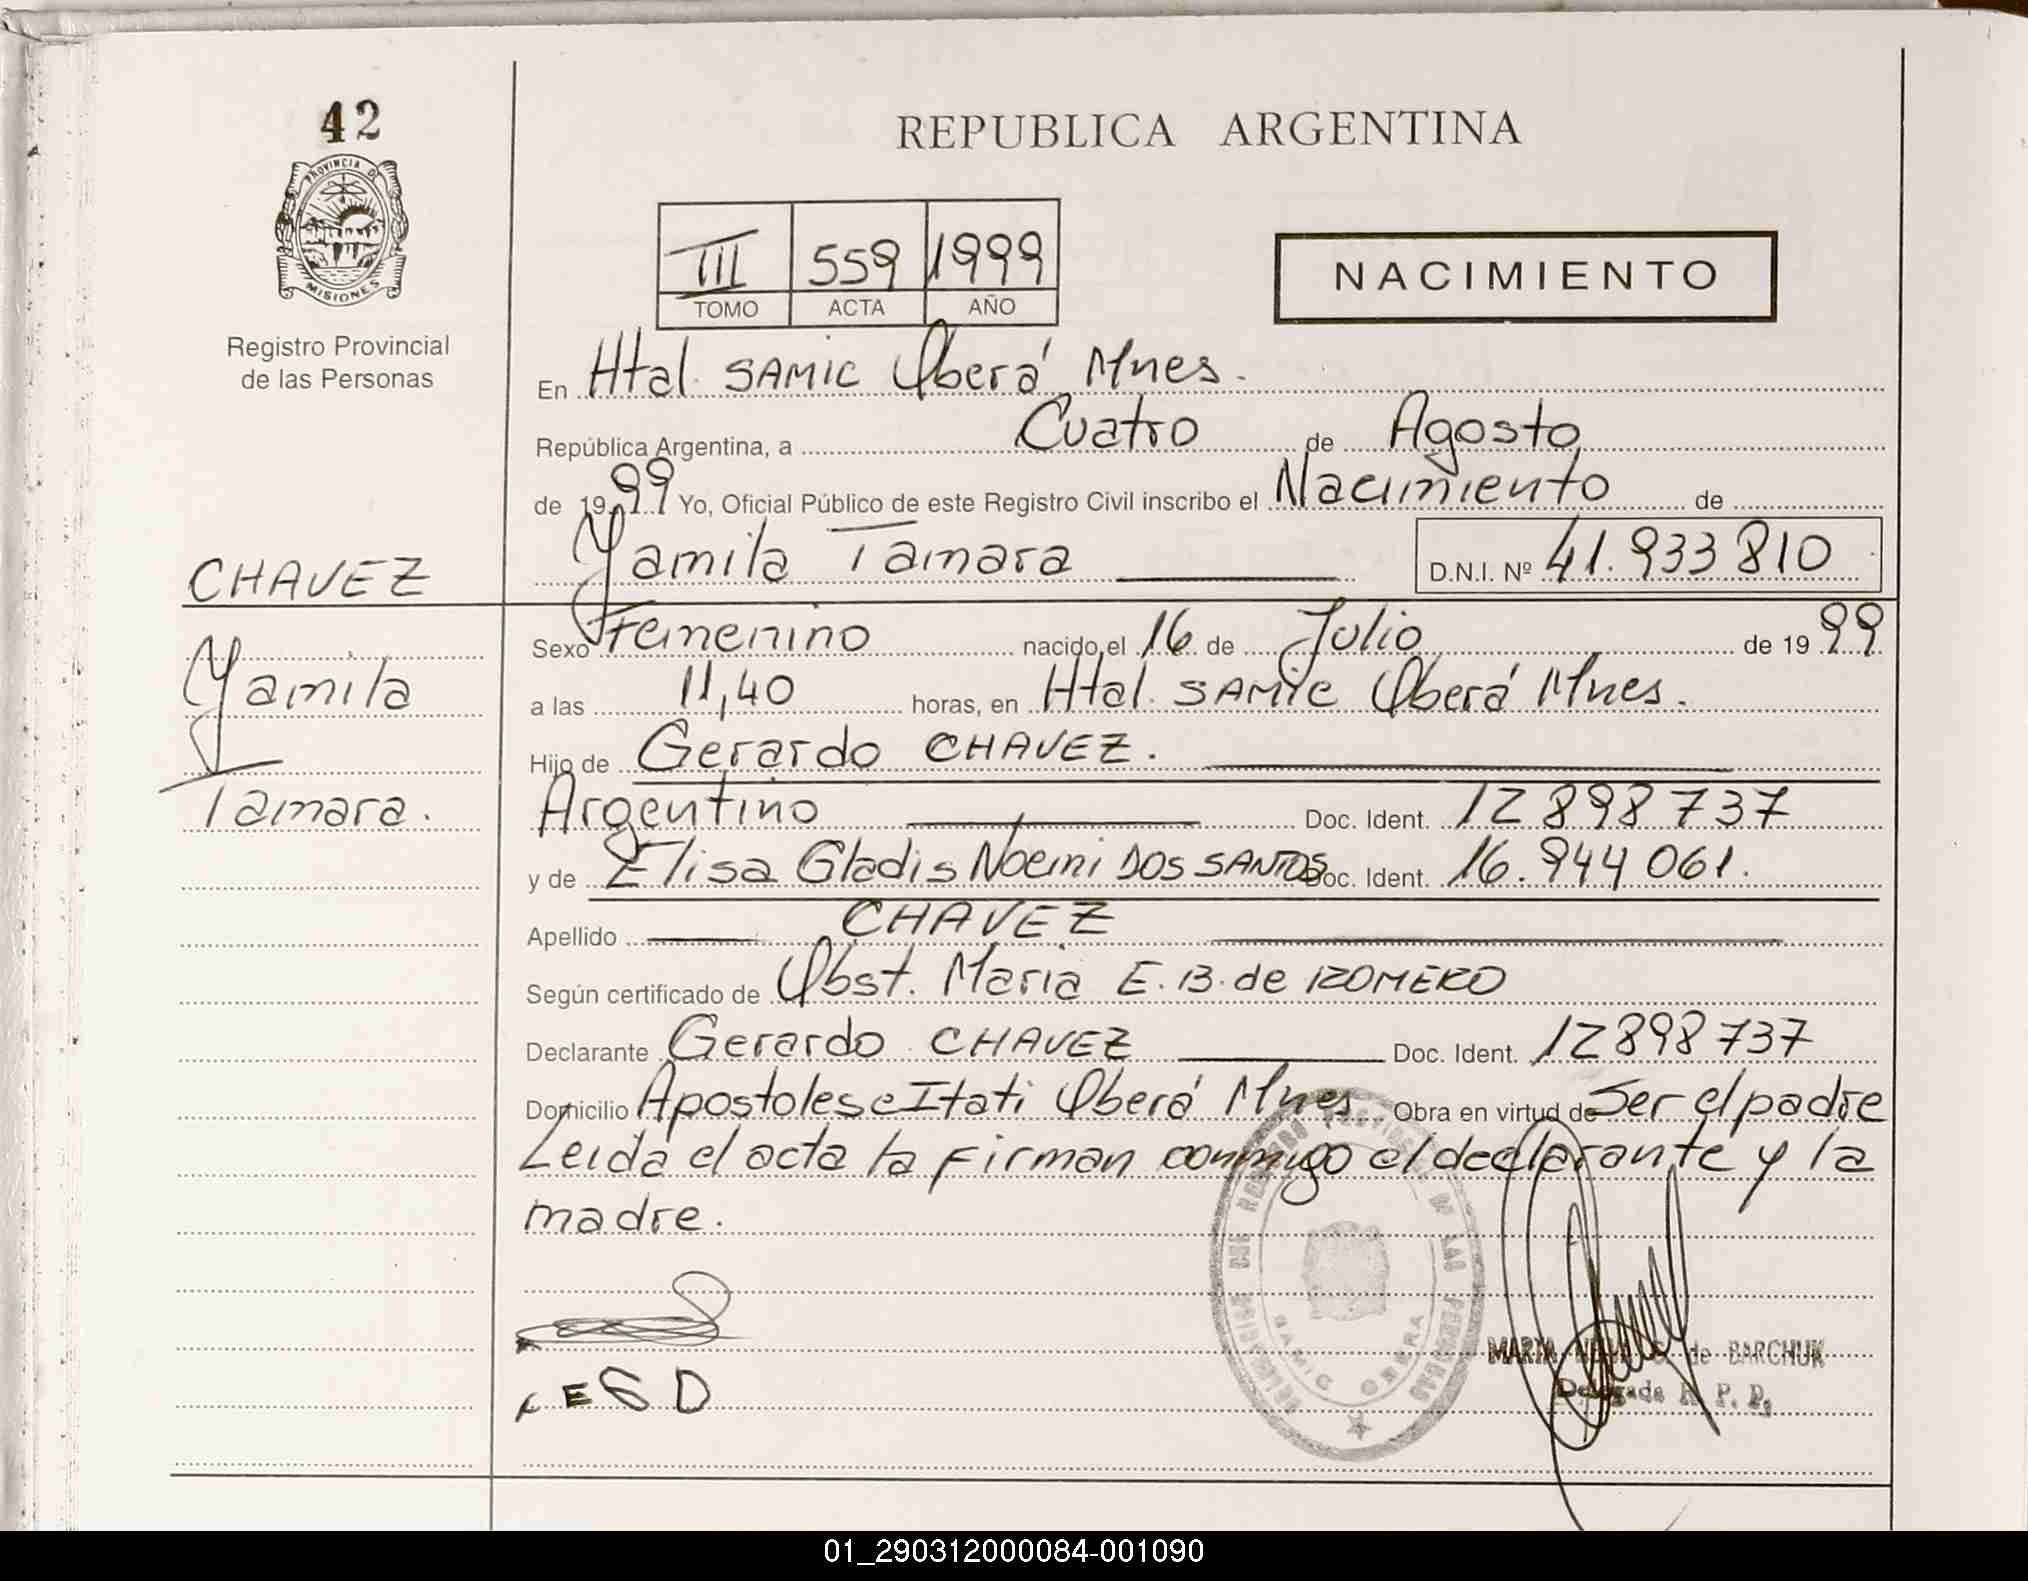 42
PROVINCIA D
MISIONES
Registro Provincial
de las Personas
REPUBLICA ARGENTINA
III 559 1999
TOMO ACTA AÑO
NACIMIENTO
En Htal. SAMIC Oberá Mnes.
República Argentina, a Cuatro de Agosto
de 1999 Yo, Oficial Público de este Registro Civil inscribo el Nacimiento de
Yamila Tamara D.N.I. Nº 41.933 810
CHAVEZ
Yamila
Tamara.
Sexo Femenino nacido el 16 de Julio de 1999
a las 11,40 horas, en Htal. SAMIC Oberá Mnes.
Hijo de Gerardo CHAVEZ.
Argentino Doc. Ident. 12 898 737
y de Elisa Gladis Noemi DOS SANTOS Doc. Ident. 16.944 061.
Apellido CHAVEZ
Según certificado de Obst. Maria E. B. de ROMERO
Declarante Gerardo CHAVEZ Doc. Ident. 12 898 737
Domicilio Apostoles e Itati Oberá Mnes Obra en virtud de Ser el padre
Leida el acta la firman conmigo el declarante y la
madre.
E S D
SAMIC OBERA
MARIA de BARCHUK
Delegada R. P. P.
01_290312000084-001090